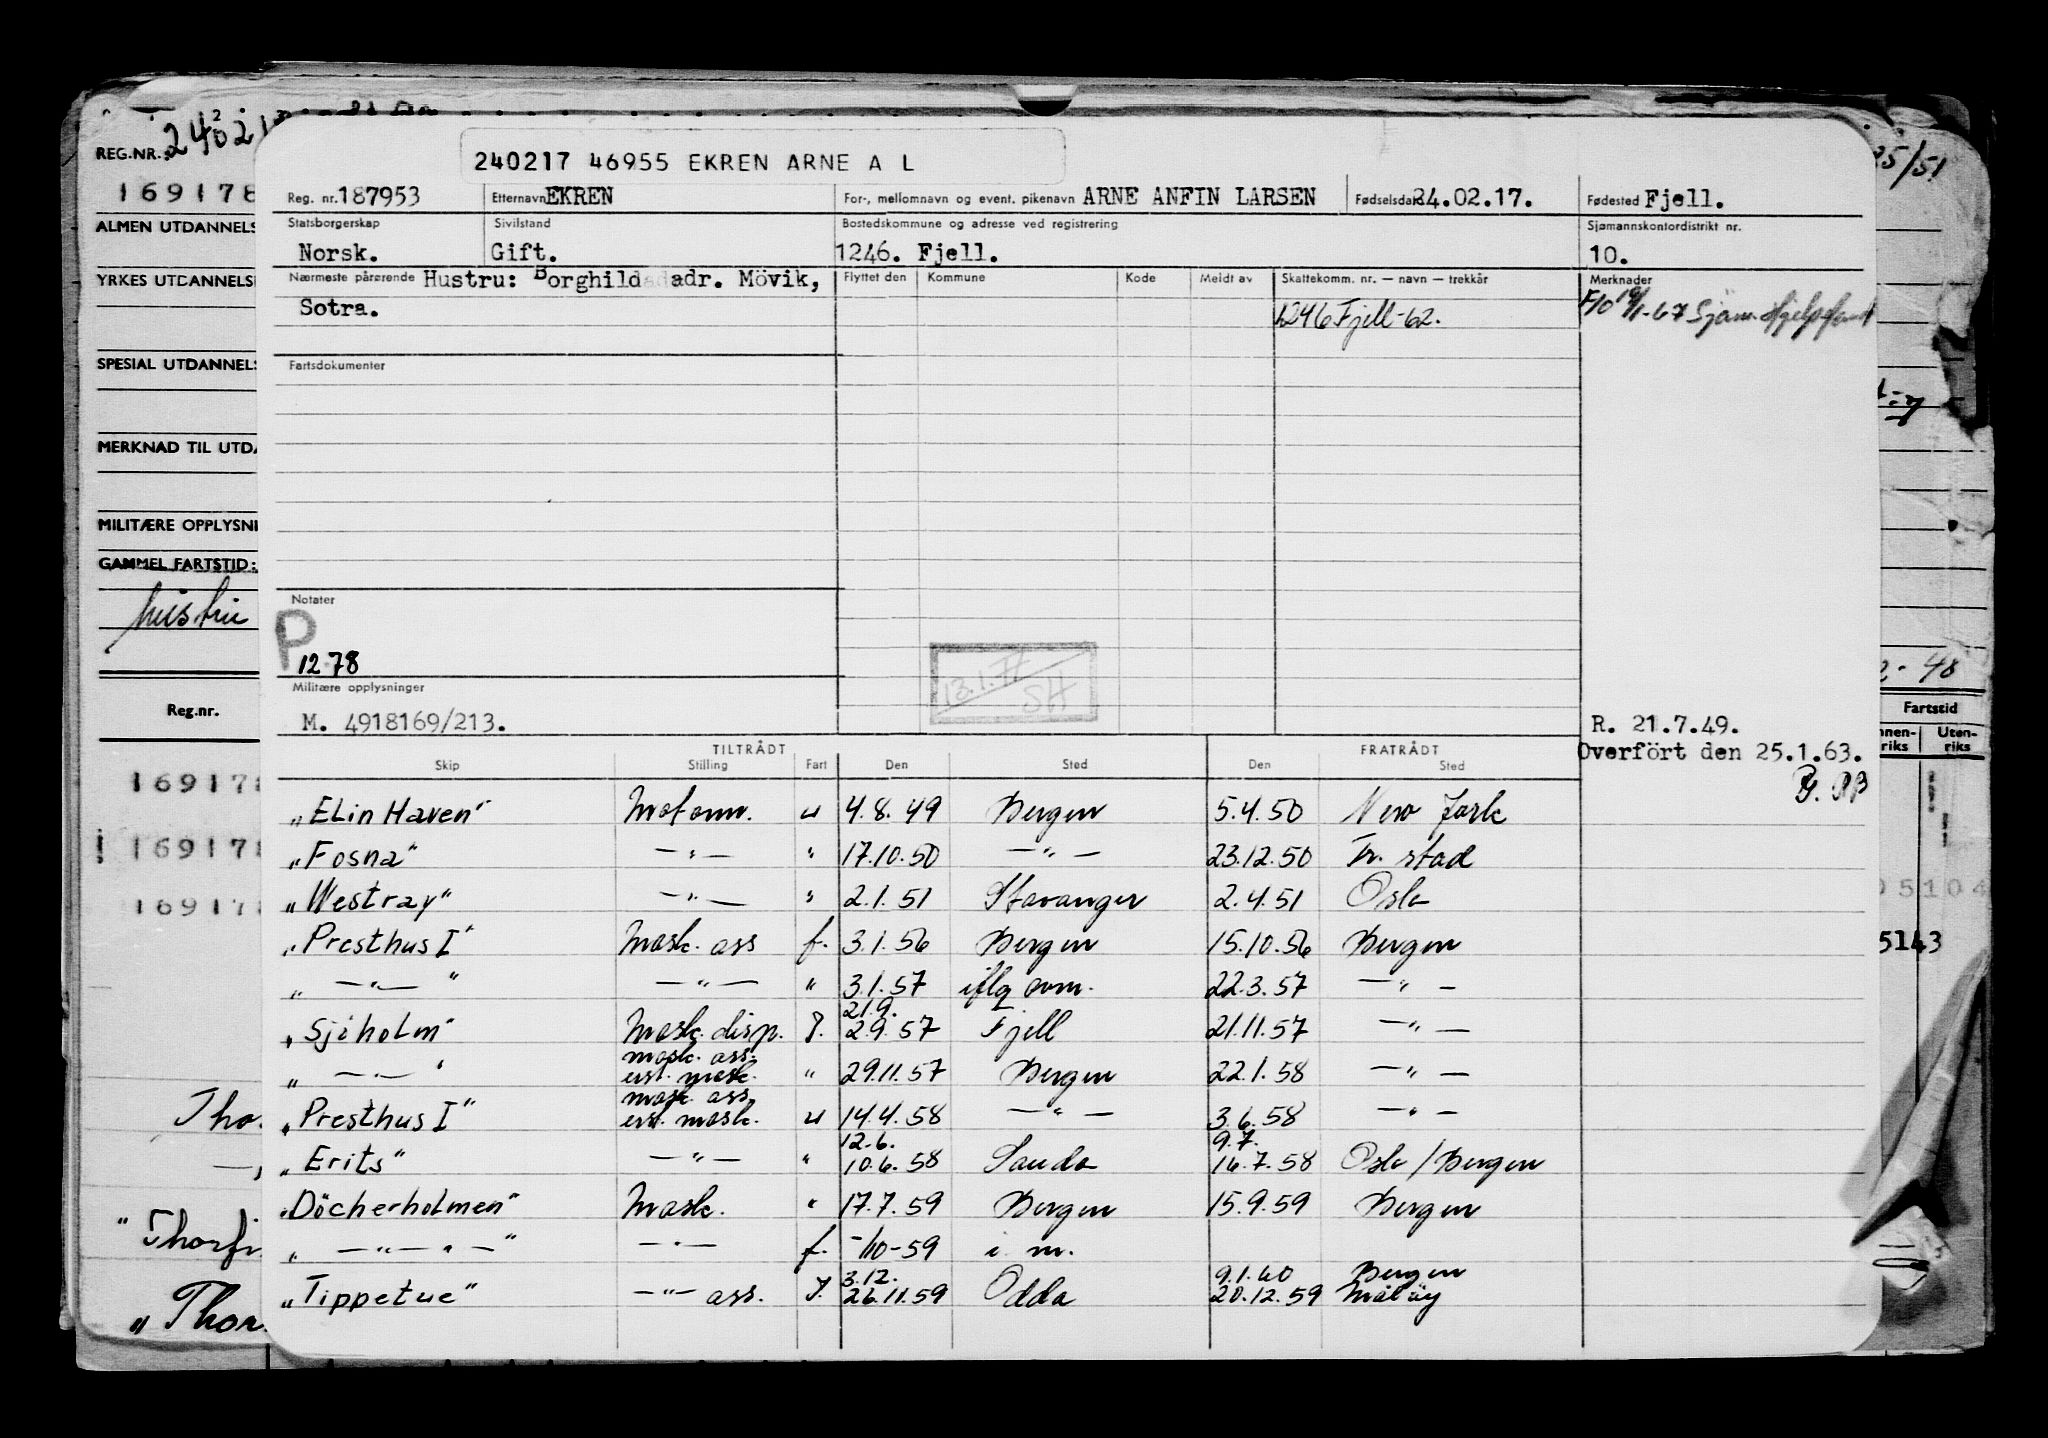 REG.NR.:
169178
ALMEN UTDANNELS
YRKES UTDANNELS
SPESIAL UTDANNELS
MERKNAD TIL UTDA
MILITÆRE OPPLYSNI
GAMMEL FARTSTID:
Reg.nr.
169178
! 169178
169178
"Thorfi
"Thor
240217 46955 EKREN ARNE A L
Reg. nr. 187953 Etternavn EKREN For-, mellomnavn og event. pikenavn ARNE ANFIN LARSEN Fødselsdato 24.02.17. Fødested Fjell.
Statsborgerskap Sivilstand Bostedskommune og adresse ved registrering Sjømannskontordistrikt nr.
Norsk. Gift. 1246. Fjell. 10.
Nærmeste pårørende Hustru: Borghild adr. Mövik, Flyttet den Kommune Kode Meldt av Skattekomm. nr. — navn — trekkår Merknader
Sotra. 1246 Fjell-62. -67 Sjøm. Hjelpefond
Fartsdokumenter
Notater
P
12 78
13.1.77
SH
Militære opplysninger
M. 4918169/213.
R. 21.7.49.
Overfört den 25.1.63.
TILTRÅDT FRATRÅDT
Skip Stilling Fart Den Sted Den Sted
"Elin Haven" Motorm. u 4.8.49 Bergen 5.4.50 New York
"Fosna" —"— " 17.10.50 —"— 23.12.50 Fr. stad
"Westray" —"— " 2.1.51 Stavanger 2.4.51 Oslo
"Presthus I" Mask. ass f. 3.1.56 Bergen 15.10.56 Bergen
" —"— " —"— " 3.1.57 iflg om. 22.3.57 —"—
21.9.
"Sjöholm" Mask. disp. 2.9.57 Fjell 21.11.57 —"—
mask. ass.
" —"— " erst. mask. " 29.11.57 Bergen 22.1.58 —"—
mask. ass
"Presthus I" erst. mask. u 14.4.58 —"— 3.6.58 —"—
12.6. 9.7.
"Erits" —"— " 10.6.58 Sauda 16.7.58 Oslo/Bergen
"Döcherholmen" Mask. " 17.7.59 Bergen 15.9.59 Bergen
" —"—"—" —"— f. -/10-59 i m.
3.12. 9.1.60 Bergen
"Tippetue" —"— ass. 26.11.59 Odda 20.12.59 Måløy
25/51
- 48
Fartstid
nnen-
riks
Uten-
riks
05104
5143